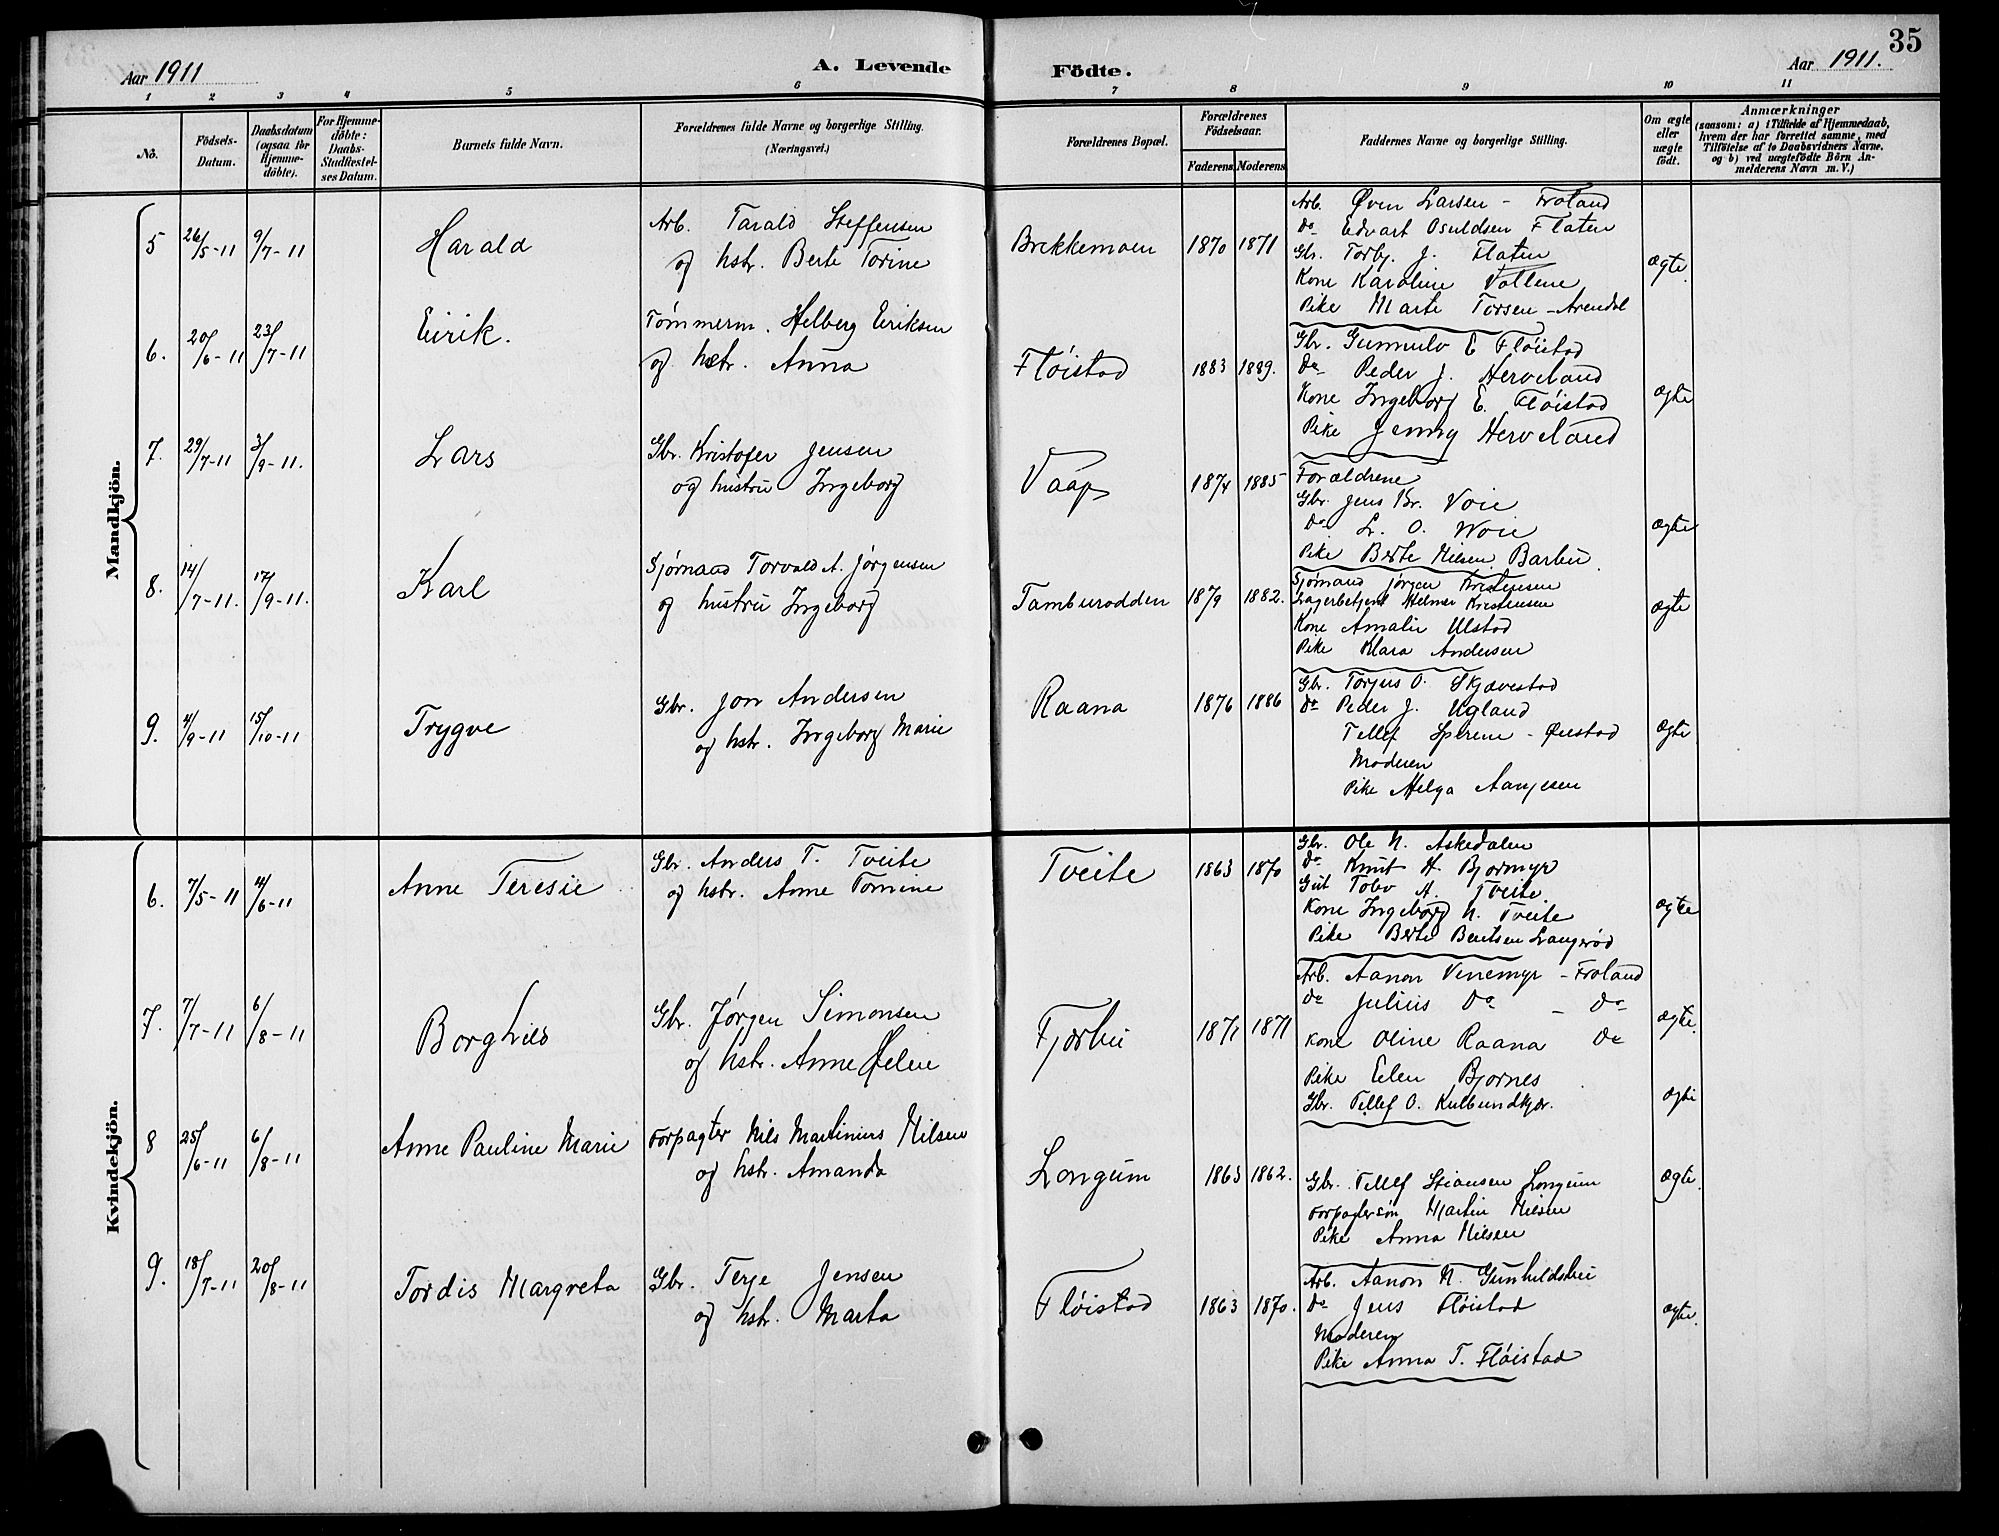 35
Aar 1911
A. Levende
Födte.
Aar 1911.
1 2 3 4 5 6 7 8 9 10 11
No.
Födsels-
Datum.
Daabsdatum
(ogsaa for
Hjemme-
döbte).
For Hjemme-
döbte:
Daabs-
Stadfæstel-
ses Datum.
Barnets fulde Navn.
Forældrenes fulde Navne og borgerlige Stilling.
(Næringsvei.)
Forældrenes Bopæl.
Forældrenes
Födselsaar.
Faderens Moderens
Faddernes Navne og borgerlige Stilling.
Om ægte
eller
uægte
födt.
Anmærkninger
(saasom: a) i Tilfælde af Hjemmedaab,
hvem der har forrettet samme, med
Tilföielse af to Daabsvidners Navne.
og b) ved uægtefödte Börn An-
melderens Navn m. V.)
Mandkjön.
5 26/5-11 9/7-11 Harald
Arb. Tarald Steffensen
og hstr. Berte Torine
Brekkemoen 1870 1871
Arb. Øven Larsen - Froland
Do Edvart Osuldsen Flaten
Gbr. Torbj. J. Flaten
Kone Karoline Vollene
Pike Marte Torsen - Arendal
ægte
6. 20/6-11 23/7-11 Eirik.
Tømmerm. Helberg Eriksen
og hstr. Anna
Fløistad 1883 1889.
Gbr. Gunnulv E Fløistad
Do Peder J. Herveland
Kone Ingeborg E. Fløistad
Pike Jenny Herveland
ægte
7. 29/7-11 3/9-11. Lars
Gbr. Kristofer Jensen
og hustru Ingeborg
1874 1885
Forældrene
Gbr. Jens Br. Voie
Do L. O. Woie
Pike Berte Nilsen Barbu.
ægte
8. 14/7-11. 17/9-11. Karl
Sjømand Torvald A. Jørgensen
og hustru Ingeborg
Tamburodden 1879 1882.
Sjømand Jørgen Kristensen
Lagerbetjent Helmer Kristensen
Kone Amalie Ulstad
Pike Klara Andersen
ægte
9. 4/9-11 15/10-11 Trygve
Gbr. Jon Andersen
og hstr. Ingeborg Marie
Raana 1876 1886
Gbr. Torjus O. Skjævestad
Do Peder J. Ugland
Tellef Sperene - Øiestad
Moderen
Pike Helga Aanjesen
ægte
Kvindekjön.
6. 7/5-11 4/6-11 Anne Teresie
Gbr. Anders T. Tveite
og hstr. Anne Tomine
Tveite 1863 1870
Gbr. Ole N. Askedalen
Do Knut A. Bjormyr
Gut Tobv A. Tveite.
Kone Ingeborg N. Tveite
Pike Berte Bentsen Langerød
ægte
7. 7/7-11 6/8-11 Borghild
Gbr. Jørgen Simonsen
og hstr. Anne Helene
Fjærbu 1871 1871
Arb. Aanon Venemyr - Froland
Do Julius Do - Do
Kone Oline Raana Do
Pike Elen Bjornes
Gbr. Tellef O. Kulbundkjær.
ægte.
ægte
8 25/6-11 6/8-11 Anne Pauline Marie
Forpagter Nils Martinius Nilsen
og hstr. Amanda
Longum 1863 1862.
Gbr. Tellef Stiansen Longum
Forpagtersøn Martin Nilsen
Pike Anna Nilsen
ægte.
9. 18/7-11 20/8-11 Tordis Margreta
Gbr. Terje Jensen
og hstr. Marta
Fløistad 1863 1870.
Arb. Aanon N. Gunhildsbu
Do Jens Fløistad
Moderen
Pike Anna T. Fløistad
ægte.